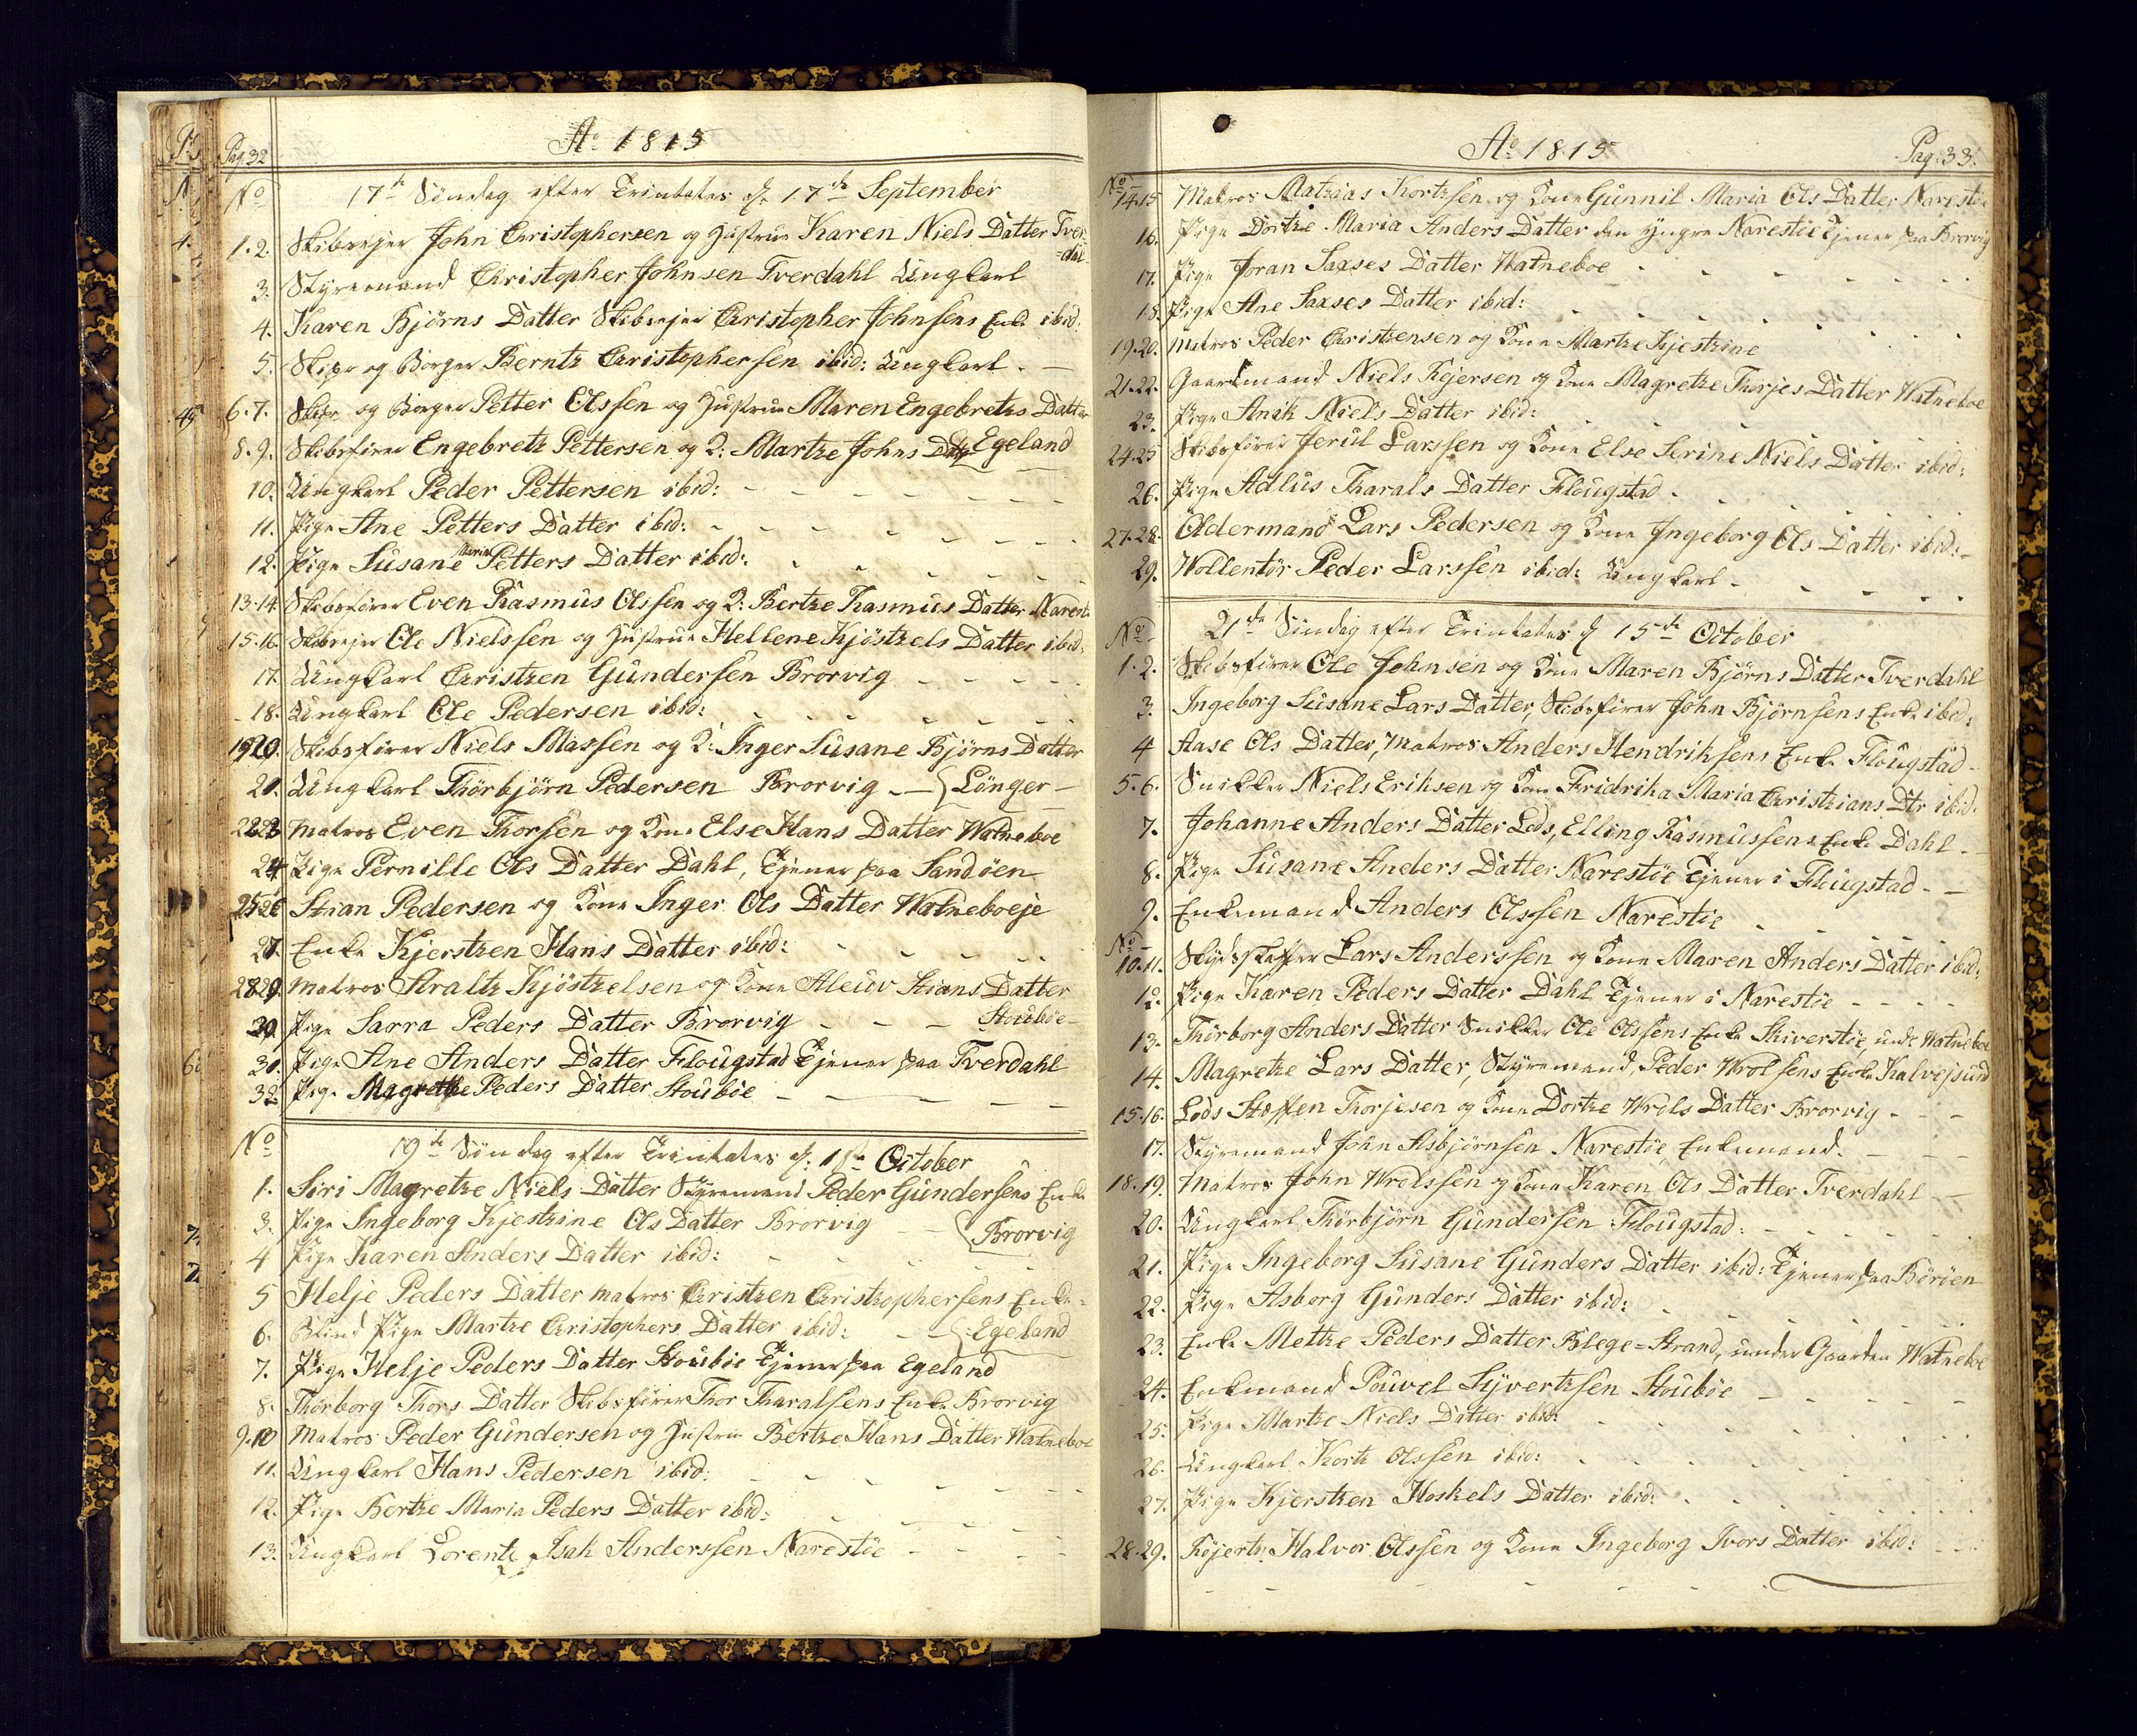 Pag. 32
Ao 1815
No 17de Søndag efter Trinitates d: 17de September
1. 2. Skibseyer John Christophersen og Hustrue Karen Niels Datter Tver-
dal
3. Styremand Christopher Johnsen Tverdahl Ungkarl
4. Karen Bjørns Datter Skibseyer Christopher Johnsens Enke ibid:
5. Skipr og Borger Berntz Christophersen ibid: Ungkarl. —
6. 7. Skipr og Borger Petter Olssen og Hustrue Maren Engebretzs Datter
8. 9. Skibsfører Engebretz Pettersen og K: Martze Johns Datr Egeland
10. Ungkarl Peder Pettersen ibid:
11. Pige Ane Petters Datter ibid:
12. Pige Susane Maria Petters Datter ibid:
13. 14. Skibsfører Even Rasmus Olssen og K: Bertze Rasmus Datter Narestø
15. 16. Skibseyer Ole Nielssen og Hustrue Hellene Kjøstzels Datter ibid:
17. Ungkarl Christzen Gundersen Brorvig
18. Ungkarl Ole Pedersen ibid:
19 20. Skibsfører Niels Massen og K: Inger Susane Bjørns Datter
21. Ungkarl Thorbjørn Pedersen Brorvig — Lønger —
22 23 Matros Even Thorsen og Kone Else Hans Datter Watneboe
24 Pige Pernille Ols Datter Dahl, Tjener paa Sandøen
25 26 Stian Pedersen og Kone Inger Ols Datter Watneboeje
27. Enke Kjerstzen Hans Datter ibid:
28 29. Matros Araltz Kjøstzelsen og Kone Aleuv Stians Datter
30. Pige Sarra Peders Datter Brorvig — — — Stoubøe —
31. Pige Ane Anders Datter Flougstad Tjener paa Tverdahl
32. Pige Magrethe Peders Datter Stoubøe
No 19de Søndag efter Trinitates d: 1ste October
1. Siri Magretze Niels Datter Styremand Peder Gundersens Enke
3. Pige Ingeborg Kjestzine Ols Datter Brorvig — Brorvig
4 Pige Karen Anders Datter ibid:
5 Helje Peders Datter Matros Christzen Christophersens Enke
6. Blind Pige Martze Christophers Datter ibid: — Egeland
7. Pige Helje Peders Datter Stoubøe Tjener paa Egeland
8. Thorborg Thors Datter Skibsfører Thor Tharalsens Enke Brorvig
9. 10 Matros Peder Gundersen og Hustrue Bertze Hans Datter Watneboe
11. Ungkarl Hans Pedersen ibid:
12. Pige Bertze Maria Peders Datter ibid:
13. Ungkarl Lorentz Isak Anderssen Narestøe
Ao 1815
Pag: 33.
No 14. 15 Matros Matzias Kortzsen og Kone Gunnil Maria Ols Datter Narestøe
16. Pige Dortze Maria Anders Datter den Yngre Narestøe Tjener paa Brorvig
17. Pige Joran Saxses Datter Watneboe
18. Pige Ane Saxses Datter ibid:
19. 20. Matros Peder Christzensen og Kone Martze Kjestzine
21. 22. Gaardmand Niels Rejersen og Kone Magretze Thorjes Datter Watneboe
23. Pige Anik Niels Datter ibid:
24. 25 Skibsfører Jerul Larssen og Kone Else Serine Niels Datter ibid:
26. Pige Adlus Tharals Datter Flougstad.
27. 28. Oldermand Lars Pedersen og Kone Ingeborg Ols Datter ibid:
29. Wollentør Peder Larssen ibid: Ungkarl
No 21de Søndag efter Trinitates d 15de October
1. 2. Skibsfører Ole Johnsen og Kone Maren Bjørns Datter Tverdahl
3. Ingeborg Susane Lars Datter, Skibsfører John Bjørnsens Enke ibid:
4 Aase Ols Datter, Matros Anders Hendriksens Enke Flougstad
5. 6. Snikker Niels Eriksen og Kone Fridrika Maria Christzians Dtr ibid.
7. Johanne Anders Datter Lods, Elling Rasmussens Enke Dahl
8. Pige Susane Anders Datter Narestøe Tjener i Flougstad — —
9. Enkemand Anders Olssen Narestøe
No 10. 11. Skydsskaffer Lars Anderssen og Kone Maren Anders Datter ibid:
12. Pige Karen Peders Datter Dahl Tjener i Narestøe
13. Thorborg Anders Datter Snikker Ole Olssens Enke Skiverstøe, unde Watneboe
14. Magretze Lars Datter, Styremand, Peder Wrolsens Enke Kalvejsund
15. 16. Lods Steffen Thorjesen og Kone Dortze Wrols Datter Brorvig
17. Styremand John Asbjørnsen Narestøe, Enkemand.
18. 19. Matros John Wrolssen og Kone Karen Ols Datter Tverdahl
20. Ungkarl Thorbjørn Gundersen Flougstad:
21. Pige Ingeborg Susane Gunders Datter ibid: Tjener paa Børøen
22. Pige Asborg Gunders Datter ibid:
23. Enke Metze Peders Datter Blege=Strand, under Gaarden Watneboe
24. Enkemand Pouvel Syvertzsen Stoubøe
25. Pige Martze Niels Datter ibid:
26. Ungkarl Kortz Olssen ibid:
27. Pige Kjerstzen Hoskels Datter ibid:
28. 29. Røjertz Halvor Olssen og Kone Ingeborg Ivors Datter ibid: